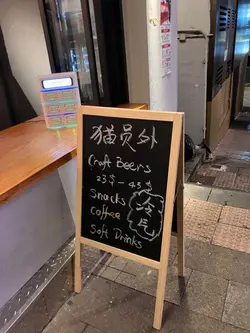 猫员外
Craft Beers
23$ - 45$
Snacks
Coffee
Soft Drinks
冷气